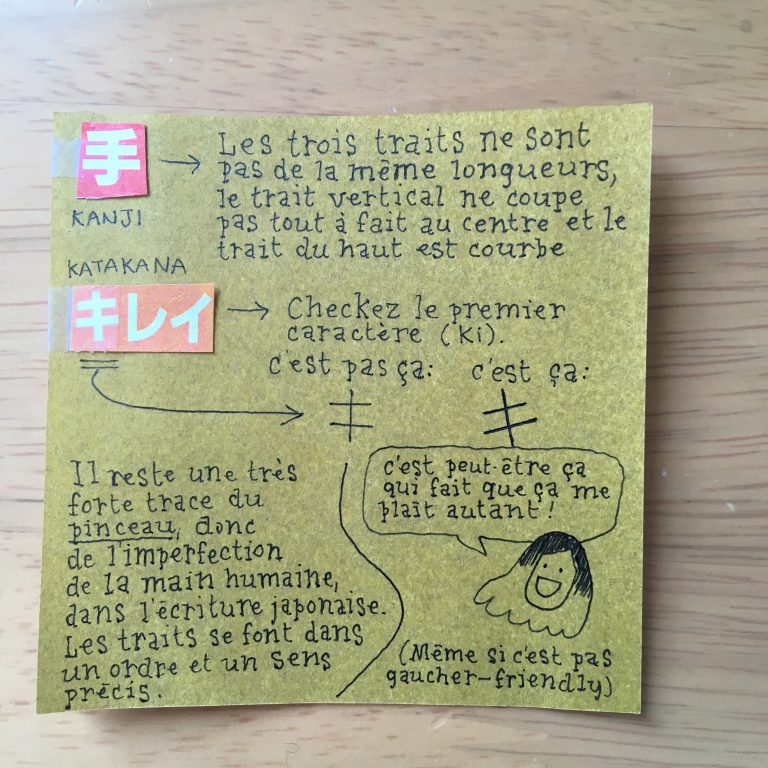 手 → Les trois traits ne sont
pas de la même longueurs,
le trait vertical ne coupe
pas tout à fait au centre et le
trait du haut est courbe
KANJI
KATAKANA
キレイ → Checkez le premier
caractère (Ki).
c'est pas ça:
キ
c'est ça:
キ
Il reste une très
forte trace du
pinceau, donc
de l'imperfection
de la main humaine,
dans l'écriture japonaise.
Les traits se font dans
un ordre et un sens
précis.
c'est peut-être ça
qui fait que ça me
plaît autant!
(Même si c'est pas
gaucher-friendly)